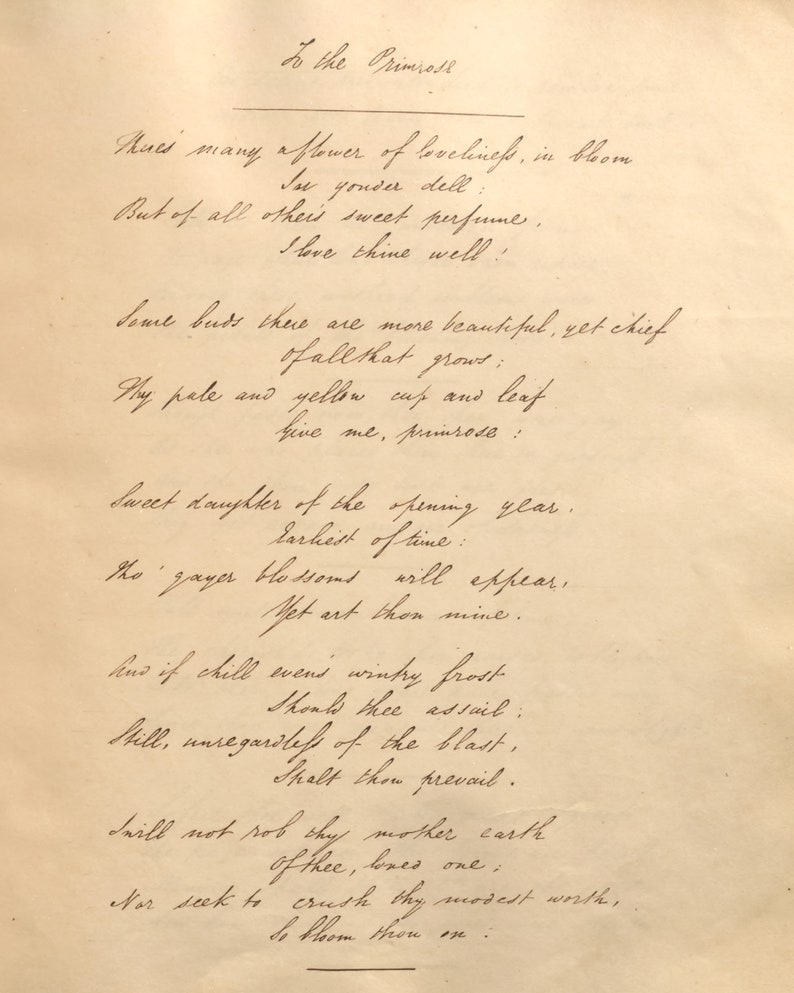 To the Primrose
There's many a flower of loveliness, in bloom
In yonder dell;
But of all other's sweet perfume,
I love thine well!
Some buds there are more beautiful, yet chief
Of all that grows;
Thy pale and yellow cup and leaf
Give me, primrose!
Sweet daughter of the opening year,
Earliest of time:
Tho' gayer blossoms will appear,
Yet art thou mine.
And if chill even's wintry frost
Should thee assail;
Still, unregardless of the blast,
Shalt thou prevail.
I will not rob thy mother earth
Of thee, loved one;
Nor seek to crush thy modest worth,
So bloom thou on!